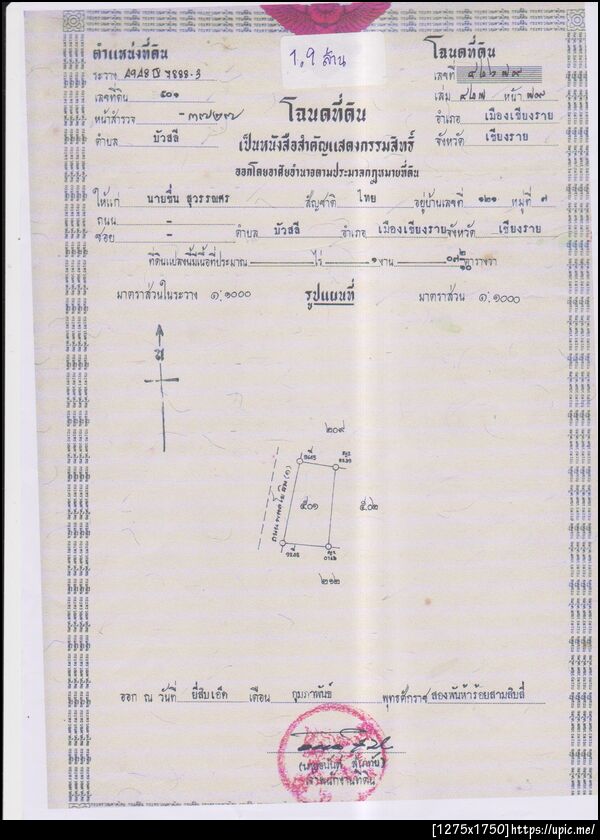 ตำแหน่งที่ดิน
1.9 ล้าน
โฉนดที่ดิน
ระวาง
เลขที่
เลขที่ดิน ๕๐๑
เล่ม หน้า
หน้าสำรวจ
โฉนดที่ดิน
อำเภอ เมืองเชียงราย
ตำบล บัวสลี
เป็นหนังสือสำคัญแสดงกรรมสิทธิ์
จังหวัด เชียงราย
ออกโดยอาศัยอำนาจตามประมวลกฎหมายที่ดิน
ให้แก่ นายชื่น สุวรรณศร สัญชาติ ไทย อยู่บ้านเลขที่ ๑๒๑ หมู่ที่ ๗
ถนน -
ซอย - ตำบล บัวสลี อำเภอ เมืองเชียงราย จังหวัด เชียงราย
ที่ดินแปลงนี้มีเนื้อที่ประมาณ - ไร่ ๑ งาน ตารางวา
มาตราส่วนในระวาง ๑:๑๐๐๐ รูปแผนที่ มาตราส่วน ๑:๑๐๐๐
น
๒๐๙
๕๐๑
๕๐๒
๒๑๒
ออก ณ วันที่ ยี่สิบเอ็ด เดือน กุมภาพันธ์ พุทธศักราช สองพันห้าร้อยสามสิบสี่
เจ้าพนักงานที่ดิน
[1275x1750]https://upic.me/